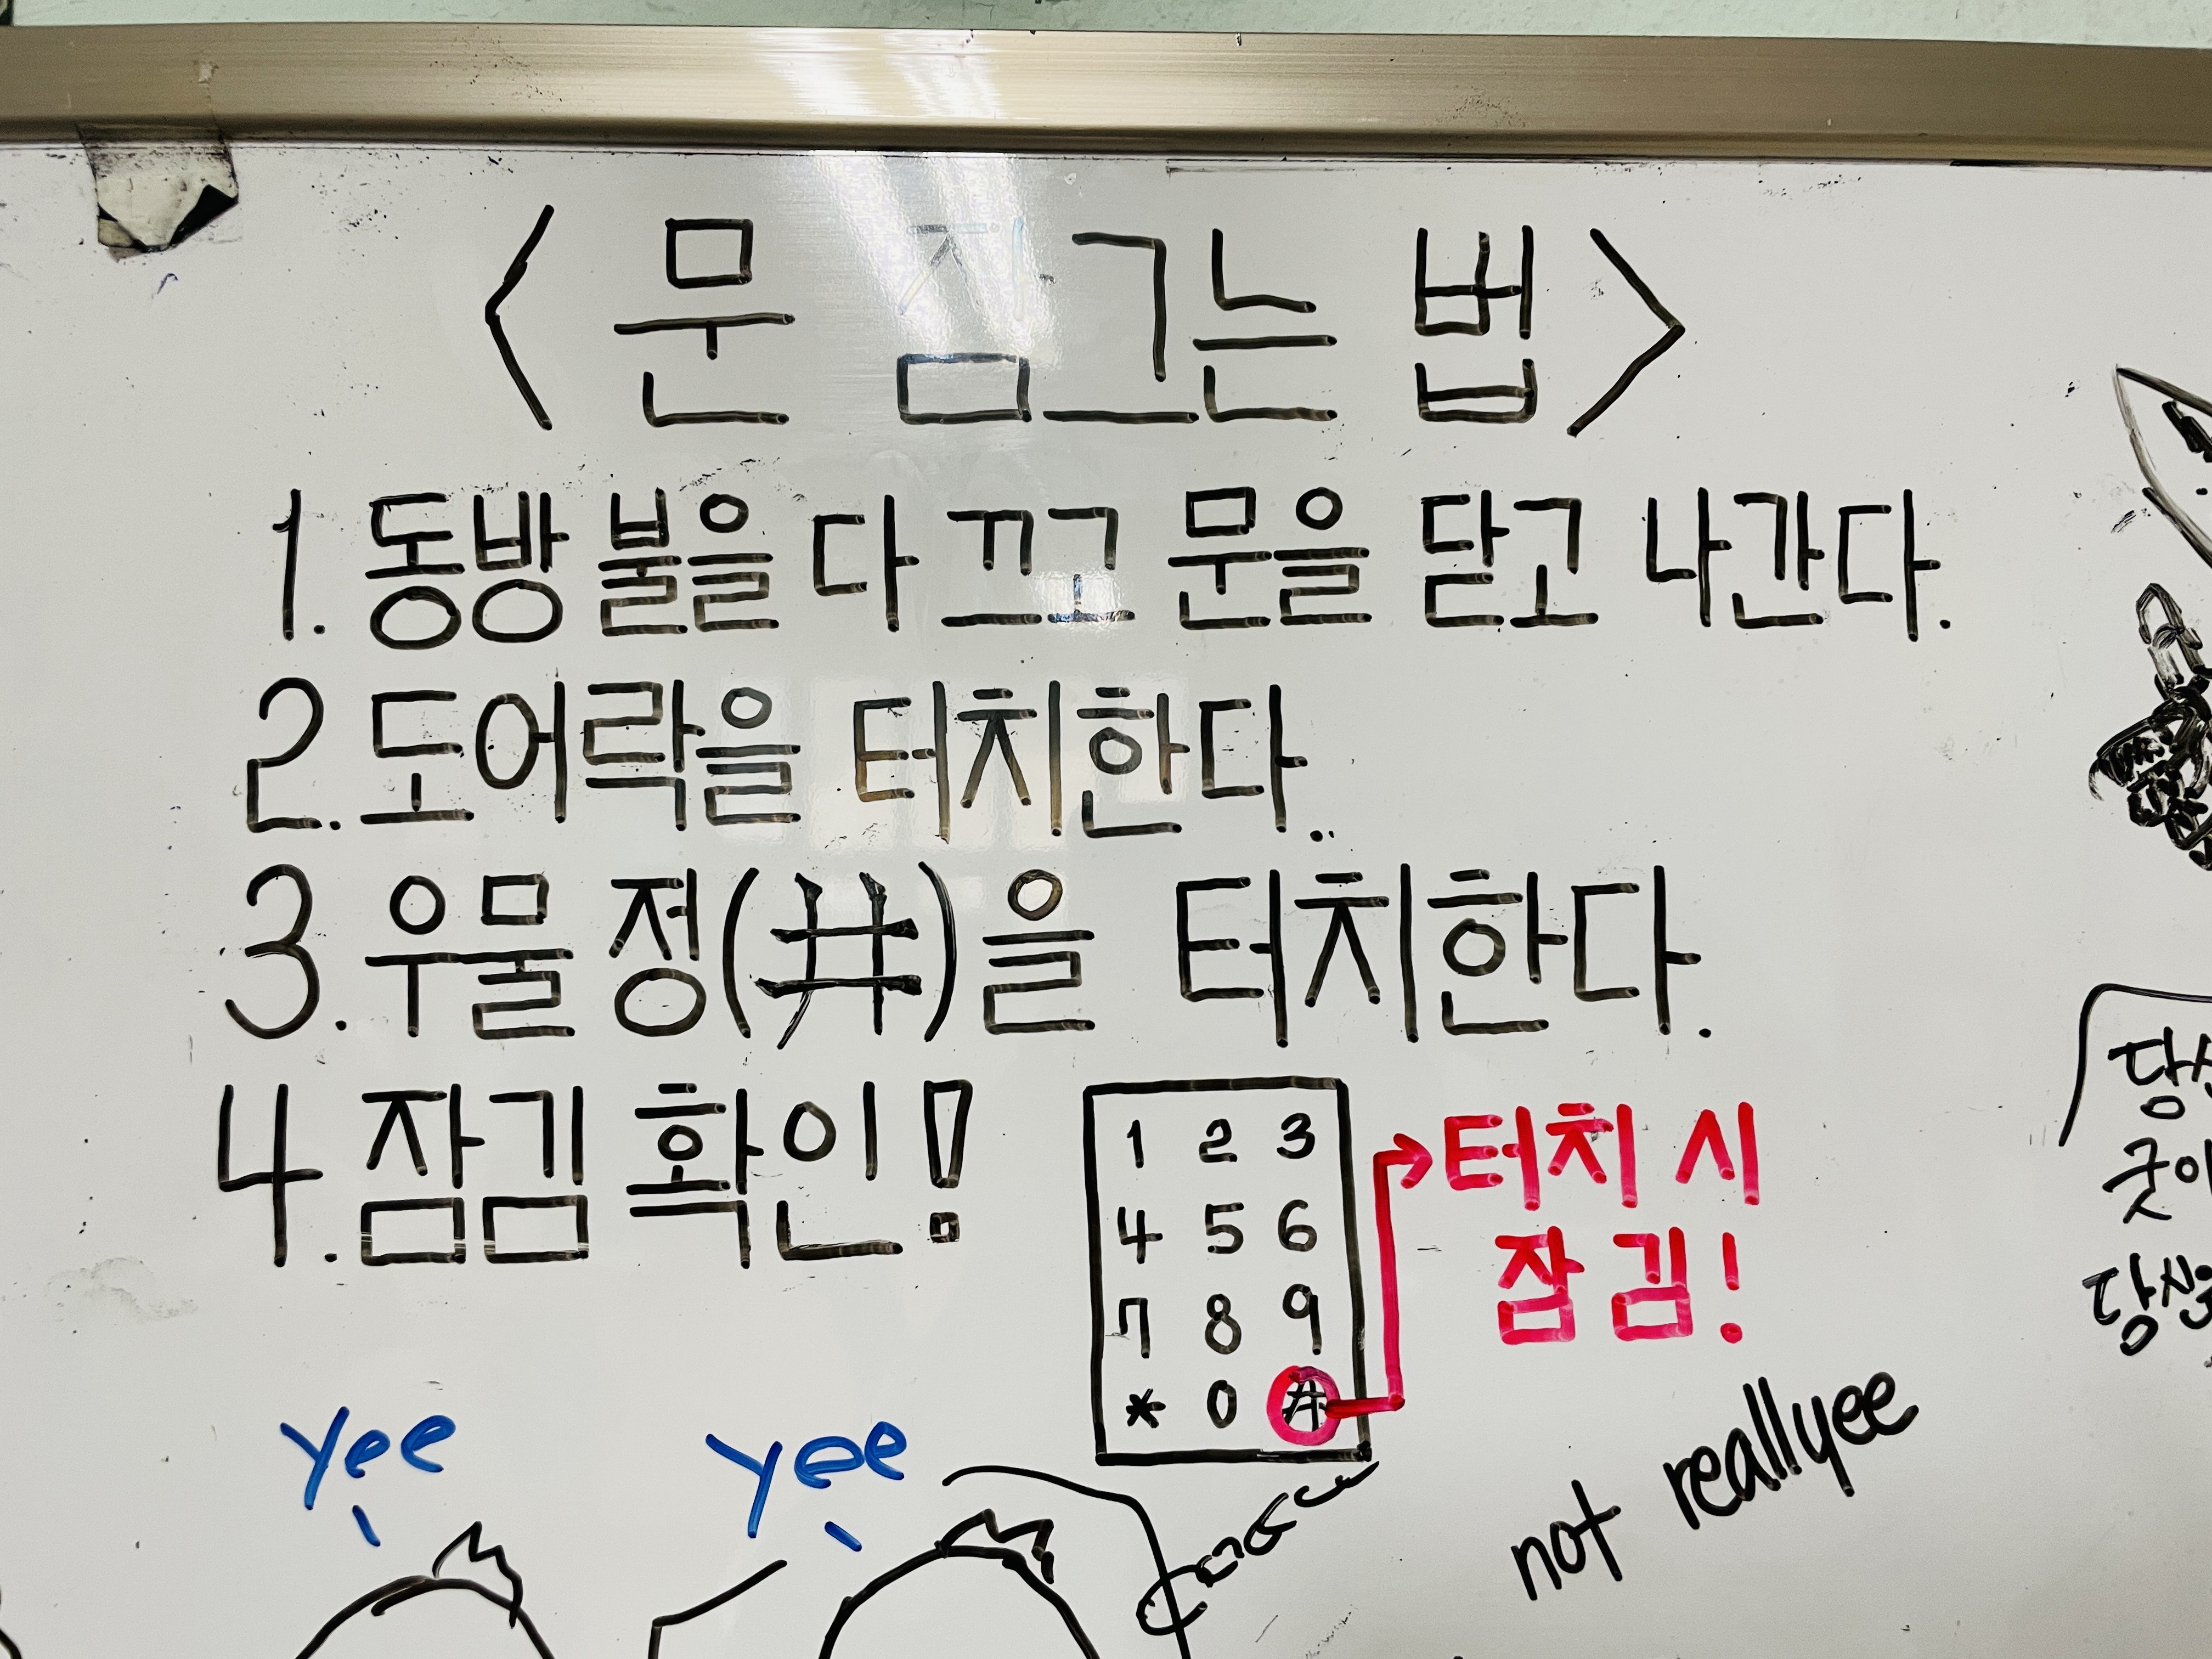 <문 잠그는 법>
1. 동방 불을 다 끄고 문을 닫고 나간다.
2. 도어락을 터치한다..
3. 우물 정(井)을 터치한다.
4. 잠김 확인!
1 2 3
4 5 6
7 8 9
* 0 #
터치 시
잠김!
yee
yee
not reallyee